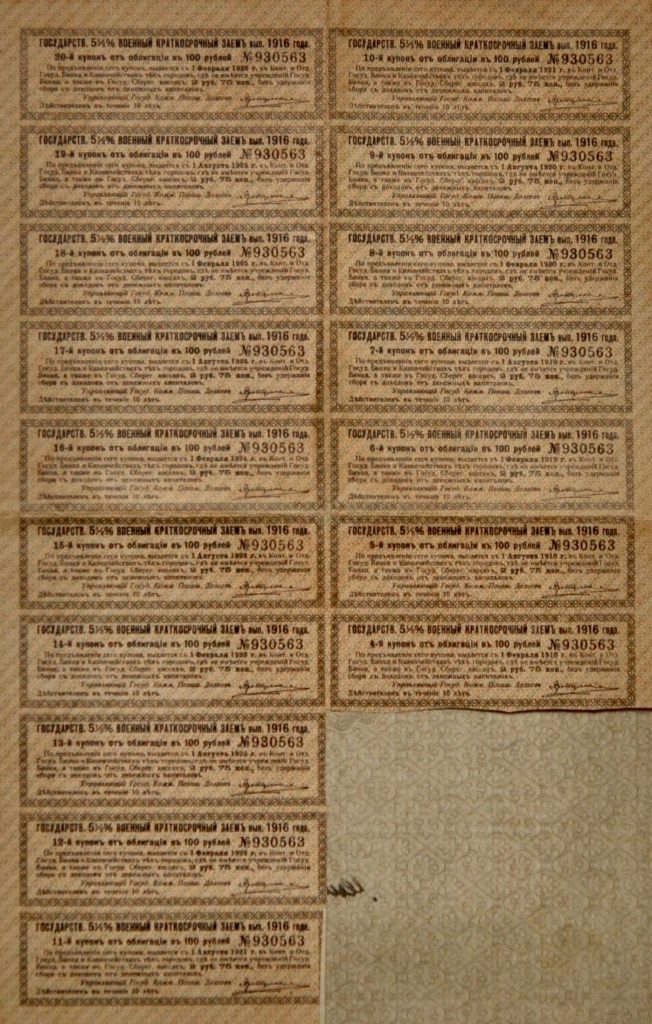 ГОСУДАРСТВ. 5½% ВОЕННЫЙ КРАТКОСРОЧНЫЙ ЗАЕМЪ вып. 1916 года.
20-й купонъ отъ облигаціи въ 100 рублей №930563
По предъявленіи сего купона, выдается съ 1 Февраля 1926 г. въ Конт. и Отд.
Госуд. Банка и Казначействахъ тѣхъ городовъ, гдѣ не имѣется учрежденій Госуд.
Банка, а также въ Госуд. Сберег. кассахъ, 2 руб. 75 коп., безъ удержанія
сбора съ доходовъ отъ денежныхъ капиталовъ.
Управляющій Госуд. Комм. Погаш. Долговъ
Дѣйствителенъ въ теченіе 10 лѣтъ.
ГОСУДАРСТВ. 5½% ВОЕННЫЙ КРАТКОСРОЧНЫЙ ЗАЕМЪ вып. 1916 года.
19-й купонъ отъ облигаціи въ 100 рублей №930563
По предъявленіи сего купона, выдается съ 1 Августа 1925 г. въ Конт. и Отд.
Госуд. Банка и Казначействахъ тѣхъ городовъ, гдѣ не имѣется учрежденій Госуд.
Банка, а также въ Госуд. Сберег. кассахъ, 2 руб. 75 коп., безъ удержанія
сбора съ доходовъ отъ денежныхъ капиталовъ.
Управляющій Госуд. Комм. Погаш. Долговъ
Дѣйствителенъ въ теченіе 10 лѣтъ.
ГОСУДАРСТВ. 5½% ВОЕННЫЙ КРАТКОСРОЧНЫЙ ЗАЕМЪ вып. 1916 года.
18-й купонъ отъ облигаціи въ 100 рублей №930563
По предъявленіи сего купона, выдается съ 1 Февраля 1925 г. въ Конт. и Отд.
Госуд. Банка и Казначействахъ тѣхъ городовъ, гдѣ не имѣется учрежденій Госуд.
Банка, а также въ Госуд. Сберег. кассахъ, 2 руб. 75 коп., безъ удержанія
сбора съ доходовъ отъ денежныхъ капиталовъ.
Управляющій Госуд. Комм. Погаш. Долговъ
Дѣйствителенъ въ теченіе 10 лѣтъ.
ГОСУДАРСТВ. 5½% ВОЕННЫЙ КРАТКОСРОЧНЫЙ ЗАЕМЪ вып. 1916 года.
17-й купонъ отъ облигаціи въ 100 рублей №930563
По предъявленіи сего купона, выдается съ 1 Августа 1924 г. въ Конт. и Отд.
Госуд. Банка и Казначействахъ тѣхъ городовъ, гдѣ не имѣется учрежденій Госуд.
Банка, а также въ Госуд. Сберег. кассахъ, 2 руб. 75 коп., безъ удержанія
сбора съ доходовъ отъ денежныхъ капиталовъ.
Управляющій Госуд. Комм. Погаш. Долговъ
Дѣйствителенъ въ теченіе 10 лѣтъ.
ГОСУДАРСТВ. 5½% ВОЕННЫЙ КРАТКОСРОЧНЫЙ ЗАЕМЪ вып. 1916 года.
16-й купонъ отъ облигаціи въ 100 рублей №930563
По предъявленіи сего купона, выдается съ 1 Февраля 1924 г. въ Конт. и Отд.
Госуд. Банка и Казначействахъ тѣхъ городовъ, гдѣ не имѣется учрежденій Госуд.
Банка, а также въ Госуд. Сберег. кассахъ, 2 руб. 75 коп., безъ удержанія
сбора съ доходовъ отъ денежныхъ капиталовъ.
Управляющій Госуд. Комм. Погаш. Долговъ
Дѣйствителенъ въ теченіе 10 лѣтъ.
ГОСУДАРСТВ. 5½% ВОЕННЫЙ КРАТКОСРОЧНЫЙ ЗАЕМЪ вып. 1916 года.
15-й купонъ отъ облигаціи въ 100 рублей №930563
По предъявленіи сего купона, выдается съ 1 Августа 1923 г. въ Конт. и Отд.
Госуд. Банка и Казначействахъ тѣхъ городовъ, гдѣ не имѣется учрежденій Госуд.
Банка, а также въ Госуд. Сберег. кассахъ, 2 руб. 75 коп., безъ удержанія
сбора съ доходовъ отъ денежныхъ капиталовъ.
Управляющій Госуд. Комм. Погаш. Долговъ
Дѣйствителенъ въ теченіе 10 лѣтъ.
ГОСУДАРСТВ. 5½% ВОЕННЫЙ КРАТКОСРОЧНЫЙ ЗАЕМЪ вып. 1916 года.
14-й купонъ отъ облигаціи въ 100 рублей №930563
По предъявленіи сего купона, выдается съ 1 Февраля 1923 г. въ Конт. и Отд.
Госуд. Банка и Казначействахъ тѣхъ городовъ, гдѣ не имѣется учрежденій Госуд.
Банка, а также въ Госуд. Сберег. кассахъ, 2 руб. 75 коп., безъ удержанія
сбора съ доходовъ отъ денежныхъ капиталовъ.
Управляющій Госуд. Комм. Погаш. Долговъ
Дѣйствителенъ въ теченіе 10 лѣтъ.
ГОСУДАРСТВ. 5½% ВОЕННЫЙ КРАТКОСРОЧНЫЙ ЗАЕМЪ вып. 1916 года.
13-й купонъ отъ облигаціи въ 100 рублей №930563
По предъявленіи сего купона, выдается съ 1 Августа 1922 г. въ Конт. и Отд.
Госуд. Банка и Казначействахъ тѣхъ городовъ, гдѣ не имѣется учрежденій Госуд.
Банка, а также въ Госуд. Сберег. кассахъ, 2 руб. 75 коп., безъ удержанія
сбора съ доходовъ отъ денежныхъ капиталовъ.
Управляющій Госуд. Комм. Погаш. Долговъ
Дѣйствителенъ въ теченіе 10 лѣтъ.
ГОСУДАРСТВ. 5½% ВОЕННЫЙ КРАТКОСРОЧНЫЙ ЗАЕМЪ вып. 1916 года.
12-й купонъ отъ облигаціи въ 100 рублей №930563
По предъявленіи сего купона, выдается съ 1 Февраля 1922 г. въ Конт. и Отд.
Госуд. Банка и Казначействахъ тѣхъ городовъ, гдѣ не имѣется учрежденій Госуд.
Банка, а также въ Госуд. Сберег. кассахъ, 2 руб. 75 коп., безъ удержанія
сбора съ доходовъ отъ денежныхъ капиталовъ.
Управляющій Госуд. Комм. Погаш. Долговъ
Дѣйствителенъ въ теченіе 10 лѣтъ.
ГОСУДАРСТВ. 5½% ВОЕННЫЙ КРАТКОСРОЧНЫЙ ЗАЕМЪ вып. 1916 года.
11-й купонъ отъ облигаціи въ 100 рублей №930563
По предъявленіи сего купона, выдается съ 1 Августа 1921 г. въ Конт. и Отд.
Госуд. Банка и Казначействахъ тѣхъ городовъ, гдѣ не имѣется учрежденій Госуд.
Банка, а также въ Госуд. Сберег. кассахъ, 2 руб. 75 коп., безъ удержанія
сбора съ доходовъ отъ денежныхъ капиталовъ.
Управляющій Госуд. Комм. Погаш. Долговъ
Дѣйствителенъ въ теченіе 10 лѣтъ.
ГОСУДАРСТВ. 5½% ВОЕННЫЙ КРАТКОСРОЧНЫЙ ЗАЕМЪ вып. 1916 года.
10-й купонъ отъ облигаціи въ 100 рублей №930563
По предъявленіи сего купона, выдается съ 1 Февраля 1921 г. въ Конт. и Отд.
Госуд. Банка и Казначействахъ тѣхъ городовъ, гдѣ не имѣется учрежденій Госуд.
Банка, а также въ Госуд. Сберег. кассахъ, 2 руб. 75 коп., безъ удержанія
сбора съ доходовъ отъ денежныхъ капиталовъ.
Управляющій Госуд. Комм. Погаш. Долговъ
Дѣйствителенъ въ теченіе 10 лѣтъ.
ГОСУДАРСТВ. 5½% ВОЕННЫЙ КРАТКОСРОЧНЫЙ ЗАЕМЪ вып. 1916 года.
9-й купонъ отъ облигаціи въ 100 рублей №930563
По предъявленіи сего купона, выдается съ 1 Августа 1920 г. въ Конт. и Отд.
Госуд. Банка и Казначействахъ тѣхъ городовъ, гдѣ не имѣется учрежденій Госуд.
Банка, а также въ Госуд. Сберег. кассахъ, 2 руб. 75 коп., безъ удержанія
сбора съ доходовъ отъ денежныхъ капиталовъ.
Управляющій Госуд. Комм. Погаш. Долговъ
Дѣйствителенъ въ теченіе 10 лѣтъ.
ГОСУДАРСТВ. 5½% ВОЕННЫЙ КРАТКОСРОЧНЫЙ ЗАЕМЪ вып. 1916 года.
8-й купонъ отъ облигаціи въ 100 рублей №930563
По предъявленіи сего купона, выдается съ 1 Февраля 1920 г. въ Конт. и Отд.
Госуд. Банка и Казначействахъ тѣхъ городовъ, гдѣ не имѣется учрежденій Госуд.
Банка, а также въ Госуд. Сберег. кассахъ, 2 руб. 75 коп., безъ удержанія
сбора съ доходовъ отъ денежныхъ капиталовъ.
Управляющій Госуд. Комм. Погаш. Долговъ
Дѣйствителенъ въ теченіе 10 лѣтъ.
ГОСУДАРСТВ. 5½% ВОЕННЫЙ КРАТКОСРОЧНЫЙ ЗАЕМЪ вып. 1916 года.
7-й купонъ отъ облигаціи въ 100 рублей №930563
По предъявленіи сего купона, выдается съ 1 Августа 1919 г. въ Конт. и Отд.
Госуд. Банка и Казначействахъ тѣхъ городовъ, гдѣ не имѣется учрежденій Госуд.
Банка, а также въ Госуд. Сберег. кассахъ, 2 руб. 75 коп., безъ удержанія
сбора съ доходовъ отъ денежныхъ капиталовъ.
Управляющій Госуд. Комм. Погаш. Долговъ
Дѣйствителенъ въ теченіе 10 лѣтъ.
ГОСУДАРСТВ. 5½% ВОЕННЫЙ КРАТКОСРОЧНЫЙ ЗАЕМЪ вып. 1916 года.
6-й купонъ отъ облигаціи въ 100 рублей №930563
По предъявленіи сего купона, выдается съ 1 Февраля 1919 г. въ Конт. и Отд.
Госуд. Банка и Казначействахъ тѣхъ городовъ, гдѣ не имѣется учрежденій Госуд.
Банка, а также въ Госуд. Сберег. кассахъ, 2 руб. 75 коп., безъ удержанія
сбора съ доходовъ отъ денежныхъ капиталовъ.
Управляющій Госуд. Комм. Погаш. Долговъ
Дѣйствителенъ въ теченіе 10 лѣтъ.
ГОСУДАРСТВ. 5½% ВОЕННЫЙ КРАТКОСРОЧНЫЙ ЗАЕМЪ вып. 1916 года.
5-й купонъ отъ облигаціи въ 100 рублей №930563
По предъявленіи сего купона, выдается съ 1 Августа 1918 г. въ Конт. и Отд.
Госуд. Банка и Казначействахъ тѣхъ городовъ, гдѣ не имѣется учрежденій Госуд.
Банка, а также въ Госуд. Сберег. кассахъ, 2 руб. 75 коп., безъ удержанія
сбора съ доходовъ отъ денежныхъ капиталовъ.
Управляющій Госуд. Комм. Погаш. Долговъ
Дѣйствителенъ въ теченіе 10 лѣтъ.
ГОСУДАРСТВ. 5½% ВОЕННЫЙ КРАТКОСРОЧНЫЙ ЗАЕМЪ вып. 1916 года.
4-й купонъ отъ облигаціи въ 100 рублей №930563
По предъявленіи сего купона, выдается съ 1 Февраля 1918 г. въ Конт. и Отд.
Госуд. Банка и Казначействахъ тѣхъ городовъ, гдѣ не имѣется учрежденій Госуд.
Банка, а также въ Госуд. Сберег. кассахъ, 2 руб. 75 коп., безъ удержанія
сбора съ доходовъ отъ денежныхъ капиталовъ.
Управляющій Госуд. Комм. Погаш. Долговъ
Дѣйствителенъ въ теченіе 10 лѣтъ.